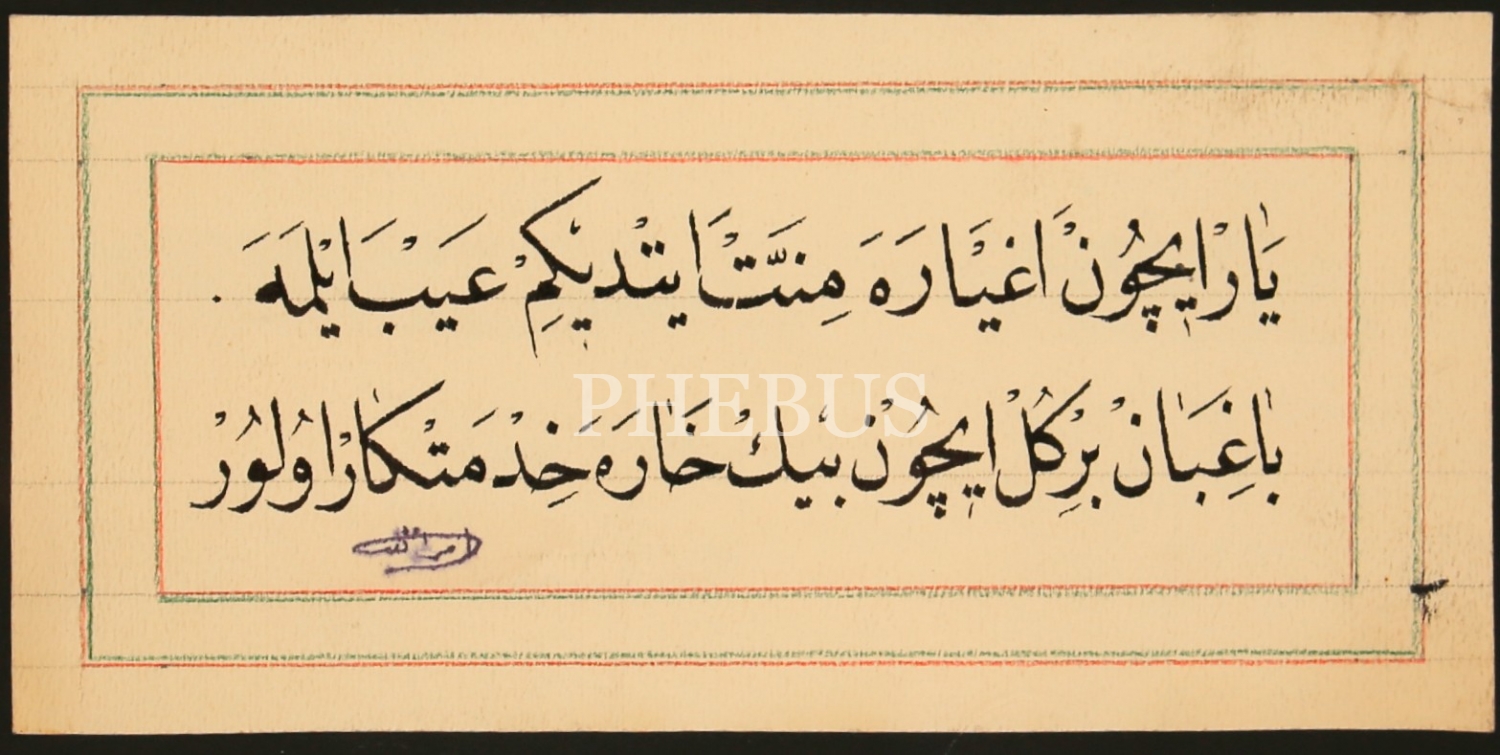 يَارْ اِيچُونْ اَغْيَارَه مِنَّتْ اَيتْدِيكِمْ عَيبْ اَيْلَمَه
بَاغِبَانْ بِرْ كُلْ اِيچُونْ بِيكْ خَارَه خِدْمَتْكَارْ اُولُورْ
PHEBUS